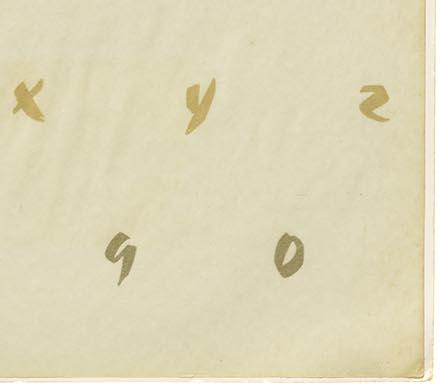 x y z
9 0